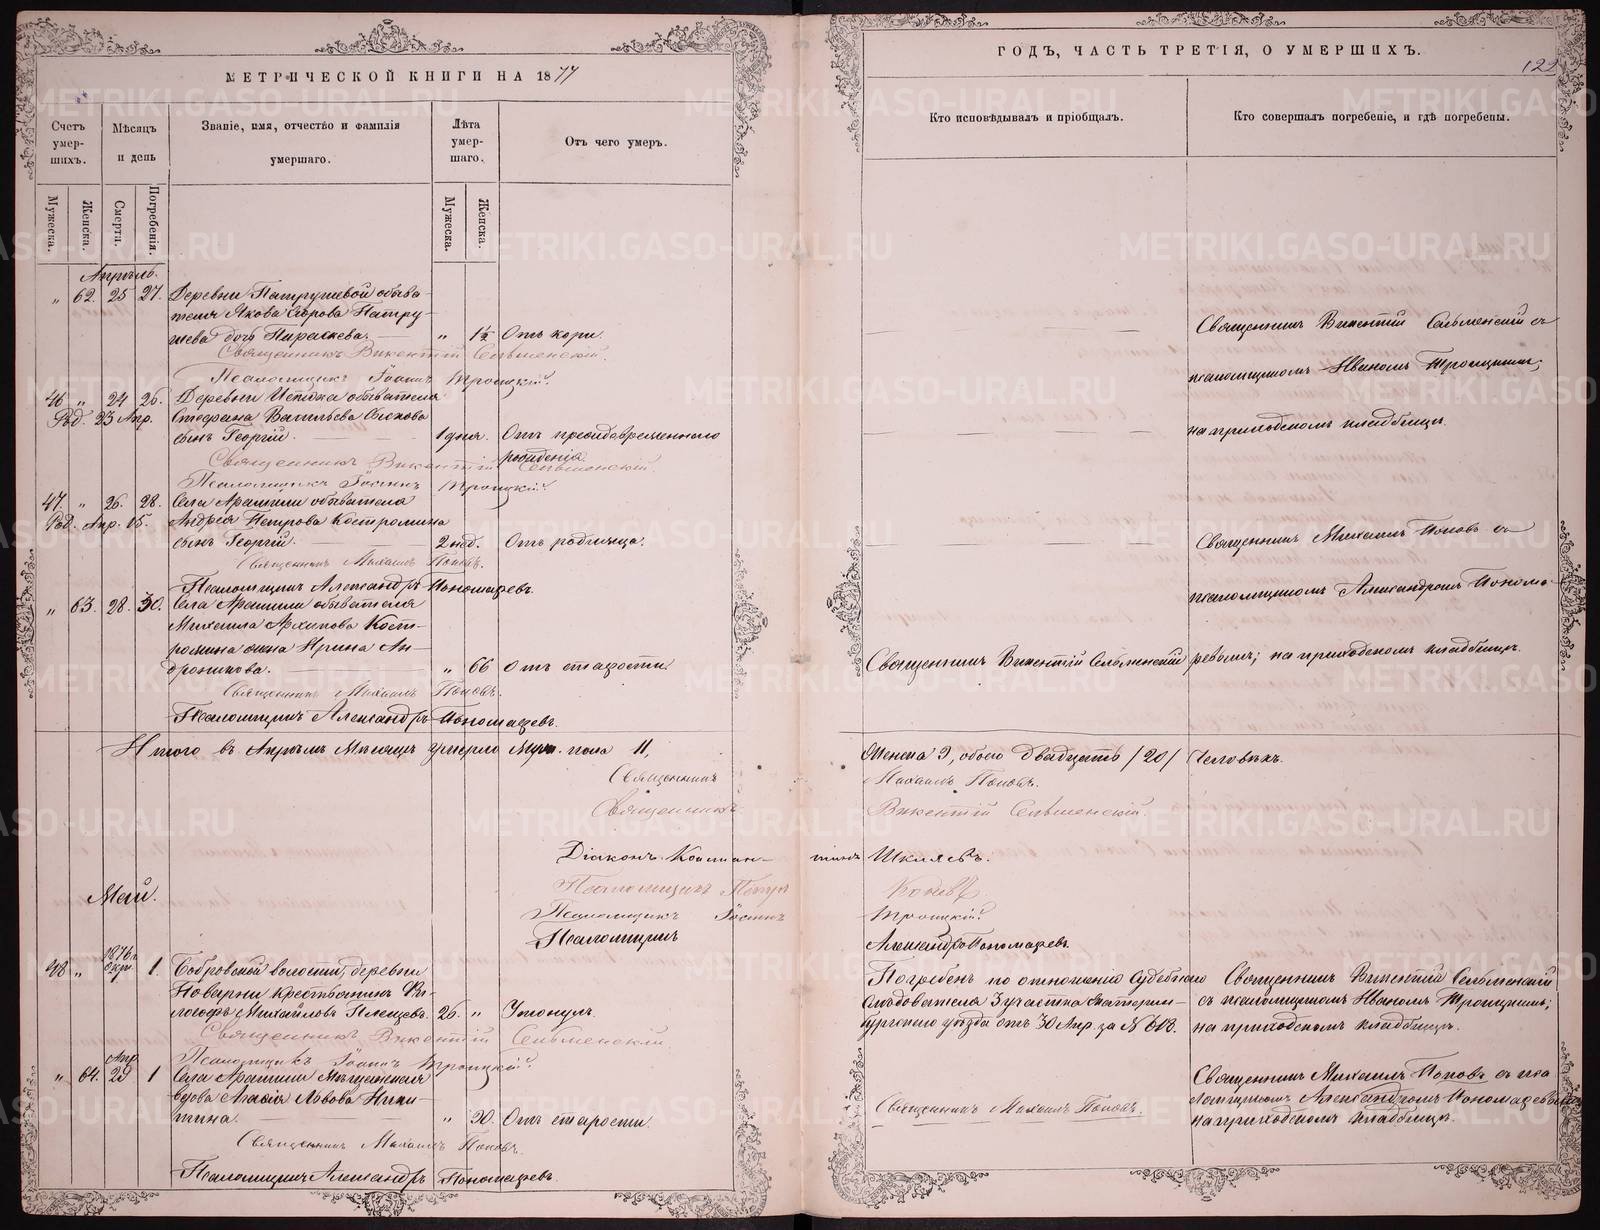 МЕТРИЧЕСКОЙ КНИГИ НА 1877
Счетъ умер-шихъ.
Мѣсяцъ и день
Званіе, имя, отчество и фамилія умершаго.
Лѣта умер-шаго.
Отъ чего умеръ.
Мужеска.
Женска.
Смерти.
Погребенія.
Мужеска.
Женска.
Апрѣль.
" 62. 25 27. Деревни Патрушевой обыва-
теля Якова Патру-
шева дочь Параскева. " 1½ Отъ кори.
Священникъ Викентій Сельменскій.
Псаломщикъ Іоаннъ Троицкій.
46 " 24 26. Деревни обывателя
Род. 23 Апр. Стефана Васильева
сынъ Георгій. 1 дня. Отъ преждевременнаго
рожденія.
Священникъ Викентій Сельменскій.
Псаломщикъ Іоаннъ Троицкій.
47. " 26. 28. Села Арамили обывателя
Род. Апр. 15. Андрея Петрова Костромина
сынъ Георгій. 2 нед. Отъ родимца.
Священникъ Михаилъ Поповъ.
Псаломщикъ Александръ Пономаревъ.
" 63. 28. 30. Села Арамили обывателя
Михаила Архипова Кост-
ромина жена Ирина Ан-
дроникова. " 66 Отъ старости.
Священникъ Михаилъ Поповъ.
Псаломщикъ Александръ Пономаревъ.
Итого въ Апрѣлѣ Мѣсяцѣ умерло Муж. пола 11,
Священникъ
Священникъ
Діаконъ Констан-
Псаломщикъ Петръ
Псаломщикъ Іоаннъ
Псаломщикъ
Май.
48 " 1876 г. Окт. 1. Бобровской волости, деревни
Поварни крестьянинъ
Михайловъ Плещевъ. 26. " Утонулъ.
Священникъ Викентій Сельменскій.
Псаломщикъ Іоаннъ Троицкій.
" 64. Апр. 29 1 Села Арамили Мѣщанская
вдова Агафія Львова Ники-
тина. " 90. Отъ старости.
Священникъ Михаилъ Поповъ.
Псаломщикъ Александръ Пономаревъ.
ГОДЪ, ЧАСТЬ ТРЕТІЯ, О УМЕРШИХЪ.
122
Кто исповѣдывалъ и пріобщалъ.
Кто совершалъ погребеніе, и гдѣ погребены.
Священникъ Викентій Сельменскій съ
псаломщикомъ Иваномъ Троицкимъ;
на приходскомъ кладбищѣ.
Священникъ Михаилъ Поповъ съ
псаломщикомъ Александромъ Понома-
Священникъ Викентій Сельменскій
ревымъ; на приходскомъ кладбищѣ.
Женска 9, обоего двадцать /20/ Человѣкъ.
Михаилъ Поповъ.
Викентій Сельменскій.
тинъ Шкляевъ.
Троицкій.
Александръ Пономаревъ.
Погребенъ по отношенію Судебнаго
Слѣдователя 3 участка Екатерин-
бургскаго уѣзда отъ 30 Апр. за № 613.
Священникъ Викентій Сельменскій
съ псаломщикомъ Иваномъ Троицкимъ;
на приходскомъ кладбищѣ.
Священникъ Михаилъ Поповъ.
Священникъ Михаилъ Поповъ съ пса
ломщикомъ Александромъ Пономаревымъ
на приходскомъ кладбищѣ.
METRIKI.GASO-URAL.RU